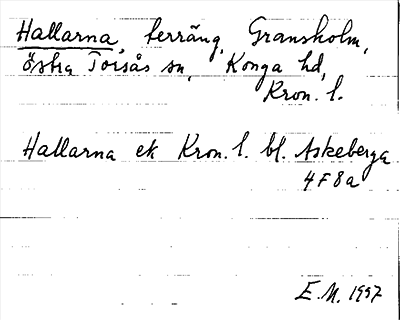 Hallarna, terräng, Gransholm,
östra Torsås sn, Konga hd,
Kron. l.
Hallarna ek Kron. l. bl. Askeberga
4 F 8 a
E.M. 1957